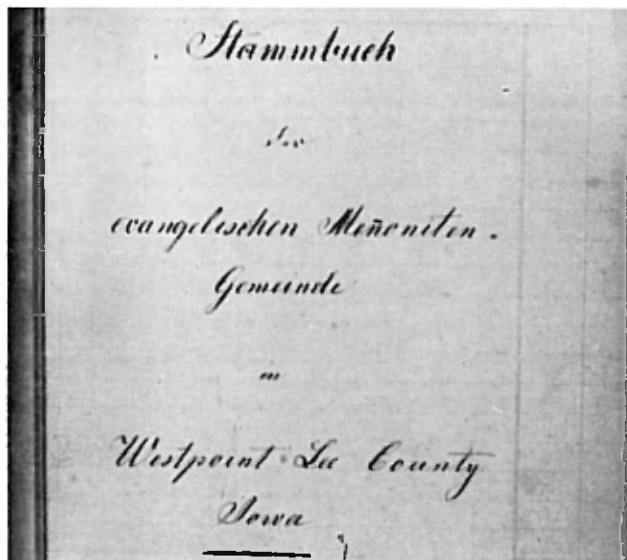 Stammbuch
der
evangelischen Meñoniten-
Gemeinde
in
Westpoint Lee County
Iowa